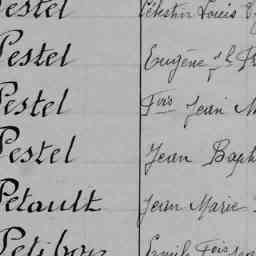 Pestel Célestin Louis
Pestel Eugène
Pestel Fois Jean M
Pestel Jean Bapt
Petault Jean Marie
Petibon Emile Fois